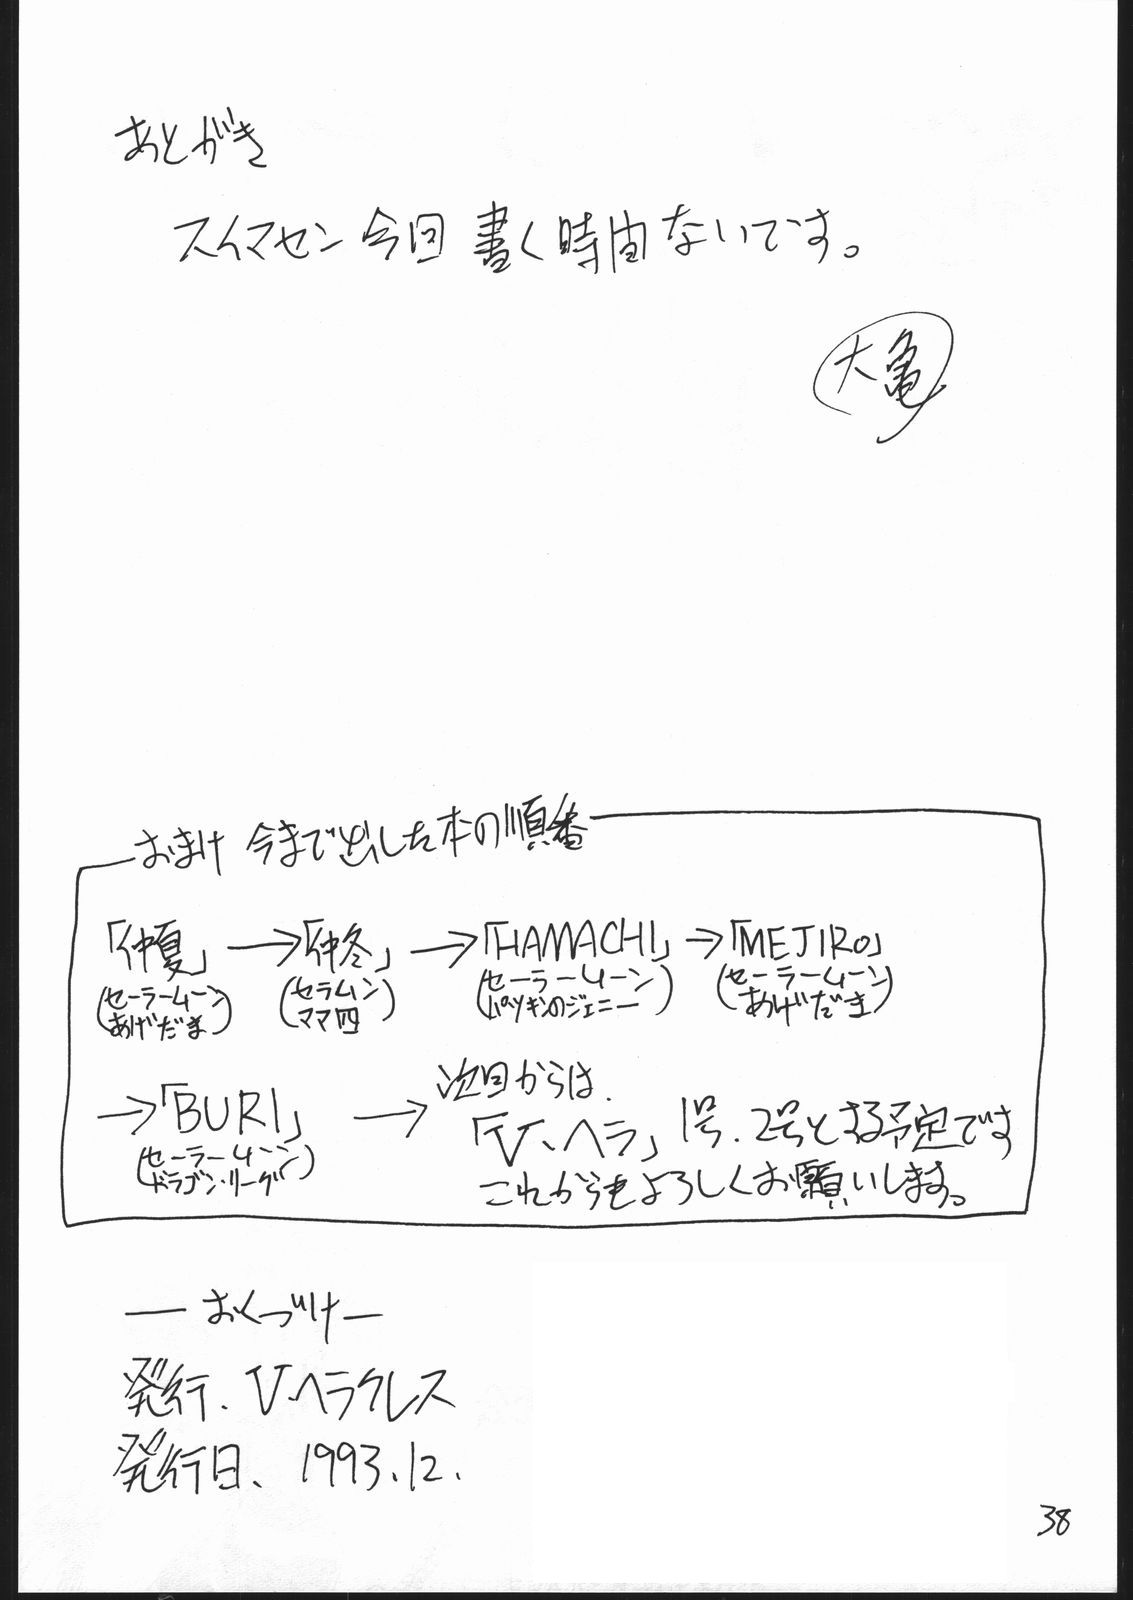 あとがき
スイマセン今回書く時間ないです。
大亀
おまけ 今まで出した本の順番
「仲夏」→「仲冬」→「HAMACHI」→「MEJIRO」
(セーラームーン あげだま) (セラムン ママ四) (セーラームーン パツキンのジェニー) (セーラームーン あげだま)
→「BURI」→ 次回からは、
(セーラームーン ドラゴン・リーグ) 「V、ヘラ」1号、2号とする予定です
これからもよろしくお願いします。
― おくづけ ―
発行、V.ヘラクレス
発行日、1993.12.
38